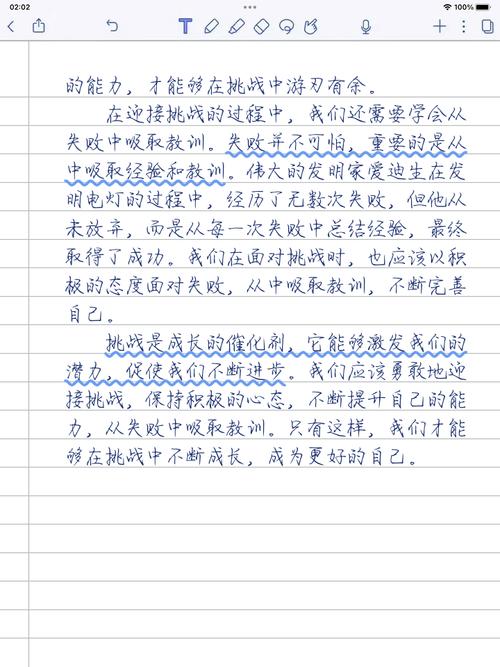 02:02
100%
T
的能力，才能够在挑战中游刃有余。
在迎接挑战的过程中，我们还需要学会从
失败中吸取教训。失败并不可怕，重要的是从
中吸取经验和教训。伟大的发明家爱迪生在发
明电灯的过程中，经历了无数次失败，但他从
未放弃，而是从每一次失败中总结经验，最终
取得了成功。我们在面对挑战时，也应该以积
极的态度面对失败，从中吸取教训，不断完善
自己。
挑战是成长的催化剂，它能够激发我们的
潜力，促使我们不断进步。我们应该勇敢地迎
接挑战，保持积极的心态，不断提升自己的能
力，从失败中吸取教训。只有这样，我们才能
够在挑战中不断成长，成为更好的自己。